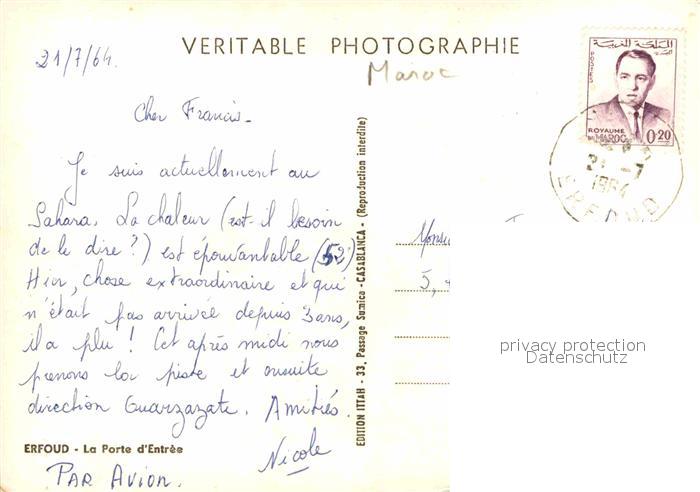 21/7/64.
VERITABLE PHOTOGRAPHIE
Maroc
Cher Francis -
Je suis actuellement au
Sahara. La chaleur (est-il besoin
de le dire ?) est épouvantable (52°
Hier, chose extraordinaire et qui
n'était pas arrivée depuis 3 ans,
il a plu ! Cet après midi nous
prenons la piste et ensuite
direction Ouarzazate. Amitiés.
Nicole
ERFOUD - La Porte d'Entrée
PAR AVION.
EDITION ITTAH - 33, Passage Sumica - CASABLANCA - (Reproduction interdite)
المملكة المغربية
POSTES
ROYAUME
DU MAROC
0.20
21 -7
1964
ERFOUD
Monsieu
5,
privacy protection
Datenschutz